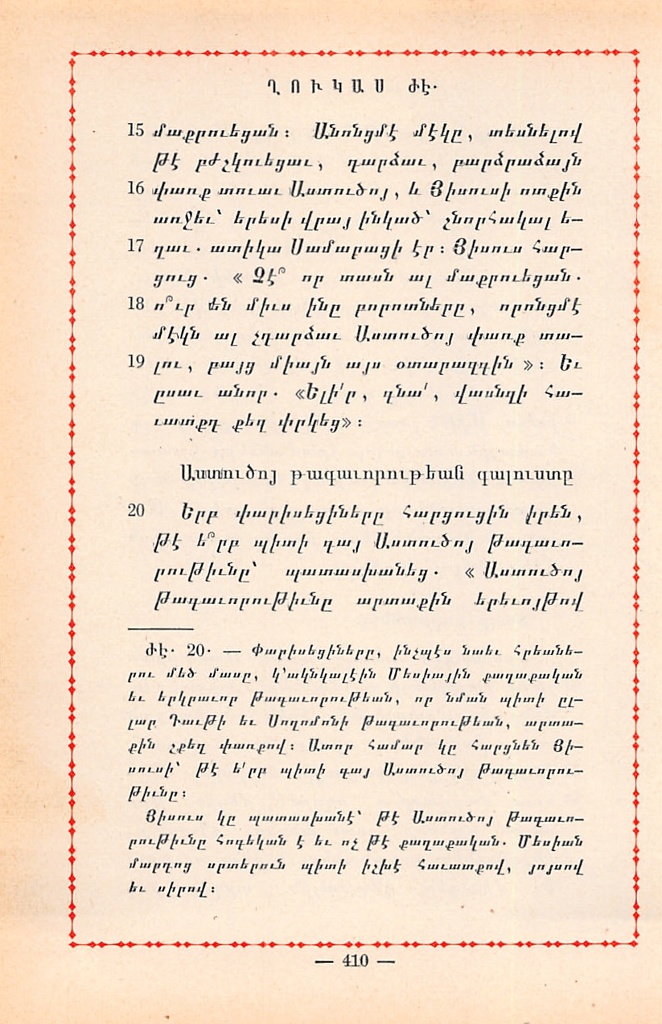 ՂՈՒԿԱՍ ԺԷ·
15 մաքրուեցան։ Անոնցմէ մէկը, տեսնելով
թէ բժշկուեցաւ, դարձաւ, բարձրաձայն
16 փառք տուաւ Աստուծոյ, և Յիսուսի ոտքին
առջեւ՝ երեսի վրայ ինկած՝ շնորհակալ ե—
17 ղաւ. ատիկա Սամարացի էր։ Յիսուս հար—
ցուց. « Չէ՞ որ տասն ալ մաքրուեցան.
18 ո՞ւր են միւս ինը բորոտները, որոնցմէ
մէկն ալ չդարձաւ Աստուծոյ փառք տա—
19 լու, բայց միայն այս օտարազգին »։ Եւ
ըսաւ անոր. «Ելի՛ր, գնա՛, վասնզի հա—
ւատքդ քեզ փրկեց»։
Աստուծոյ թագաւորութեան գալուստը
20 Երբ փարիսեցիները հարցուցին իրեն,
թէ ե՞րբ պիտի գայ Աստուծոյ թագաւո—
րութիւնը՝ պատասխանեց. « Աստուծոյ
թագաւորութիւնը արտաքին երեւոյթով
ԺԷ· 20· — Փարիսեցիները, ինչպէս նաեւ հրեանե—
րու մեծ մասը, կ՚ակնկալէին Մեսիային քաղաքական
եւ երկրաւոր թագաւորութեան, որ նման պիտի ըլ—
լար Դաւթի եւ Սողոմոնի թագաւորութեան, արտա—
քին շքեղ փառքով։ Ատոր համար կը հարցնեն Յի—
սուսի՝ թէ ե՛րբ պիտի գայ Աստուծոյ թագաւորու—
թիւնը։
Յիսուս կը պատասխանէ՝ թէ Աստուծոյ թագաւո—
րութիւնը հոգեկան է եւ ոչ թէ քաղաքական. Մեսիան
մարդոց սրտերուն պիտի իշխէ հաւատքով, յոյսով
եւ սիրով։
— 410 —